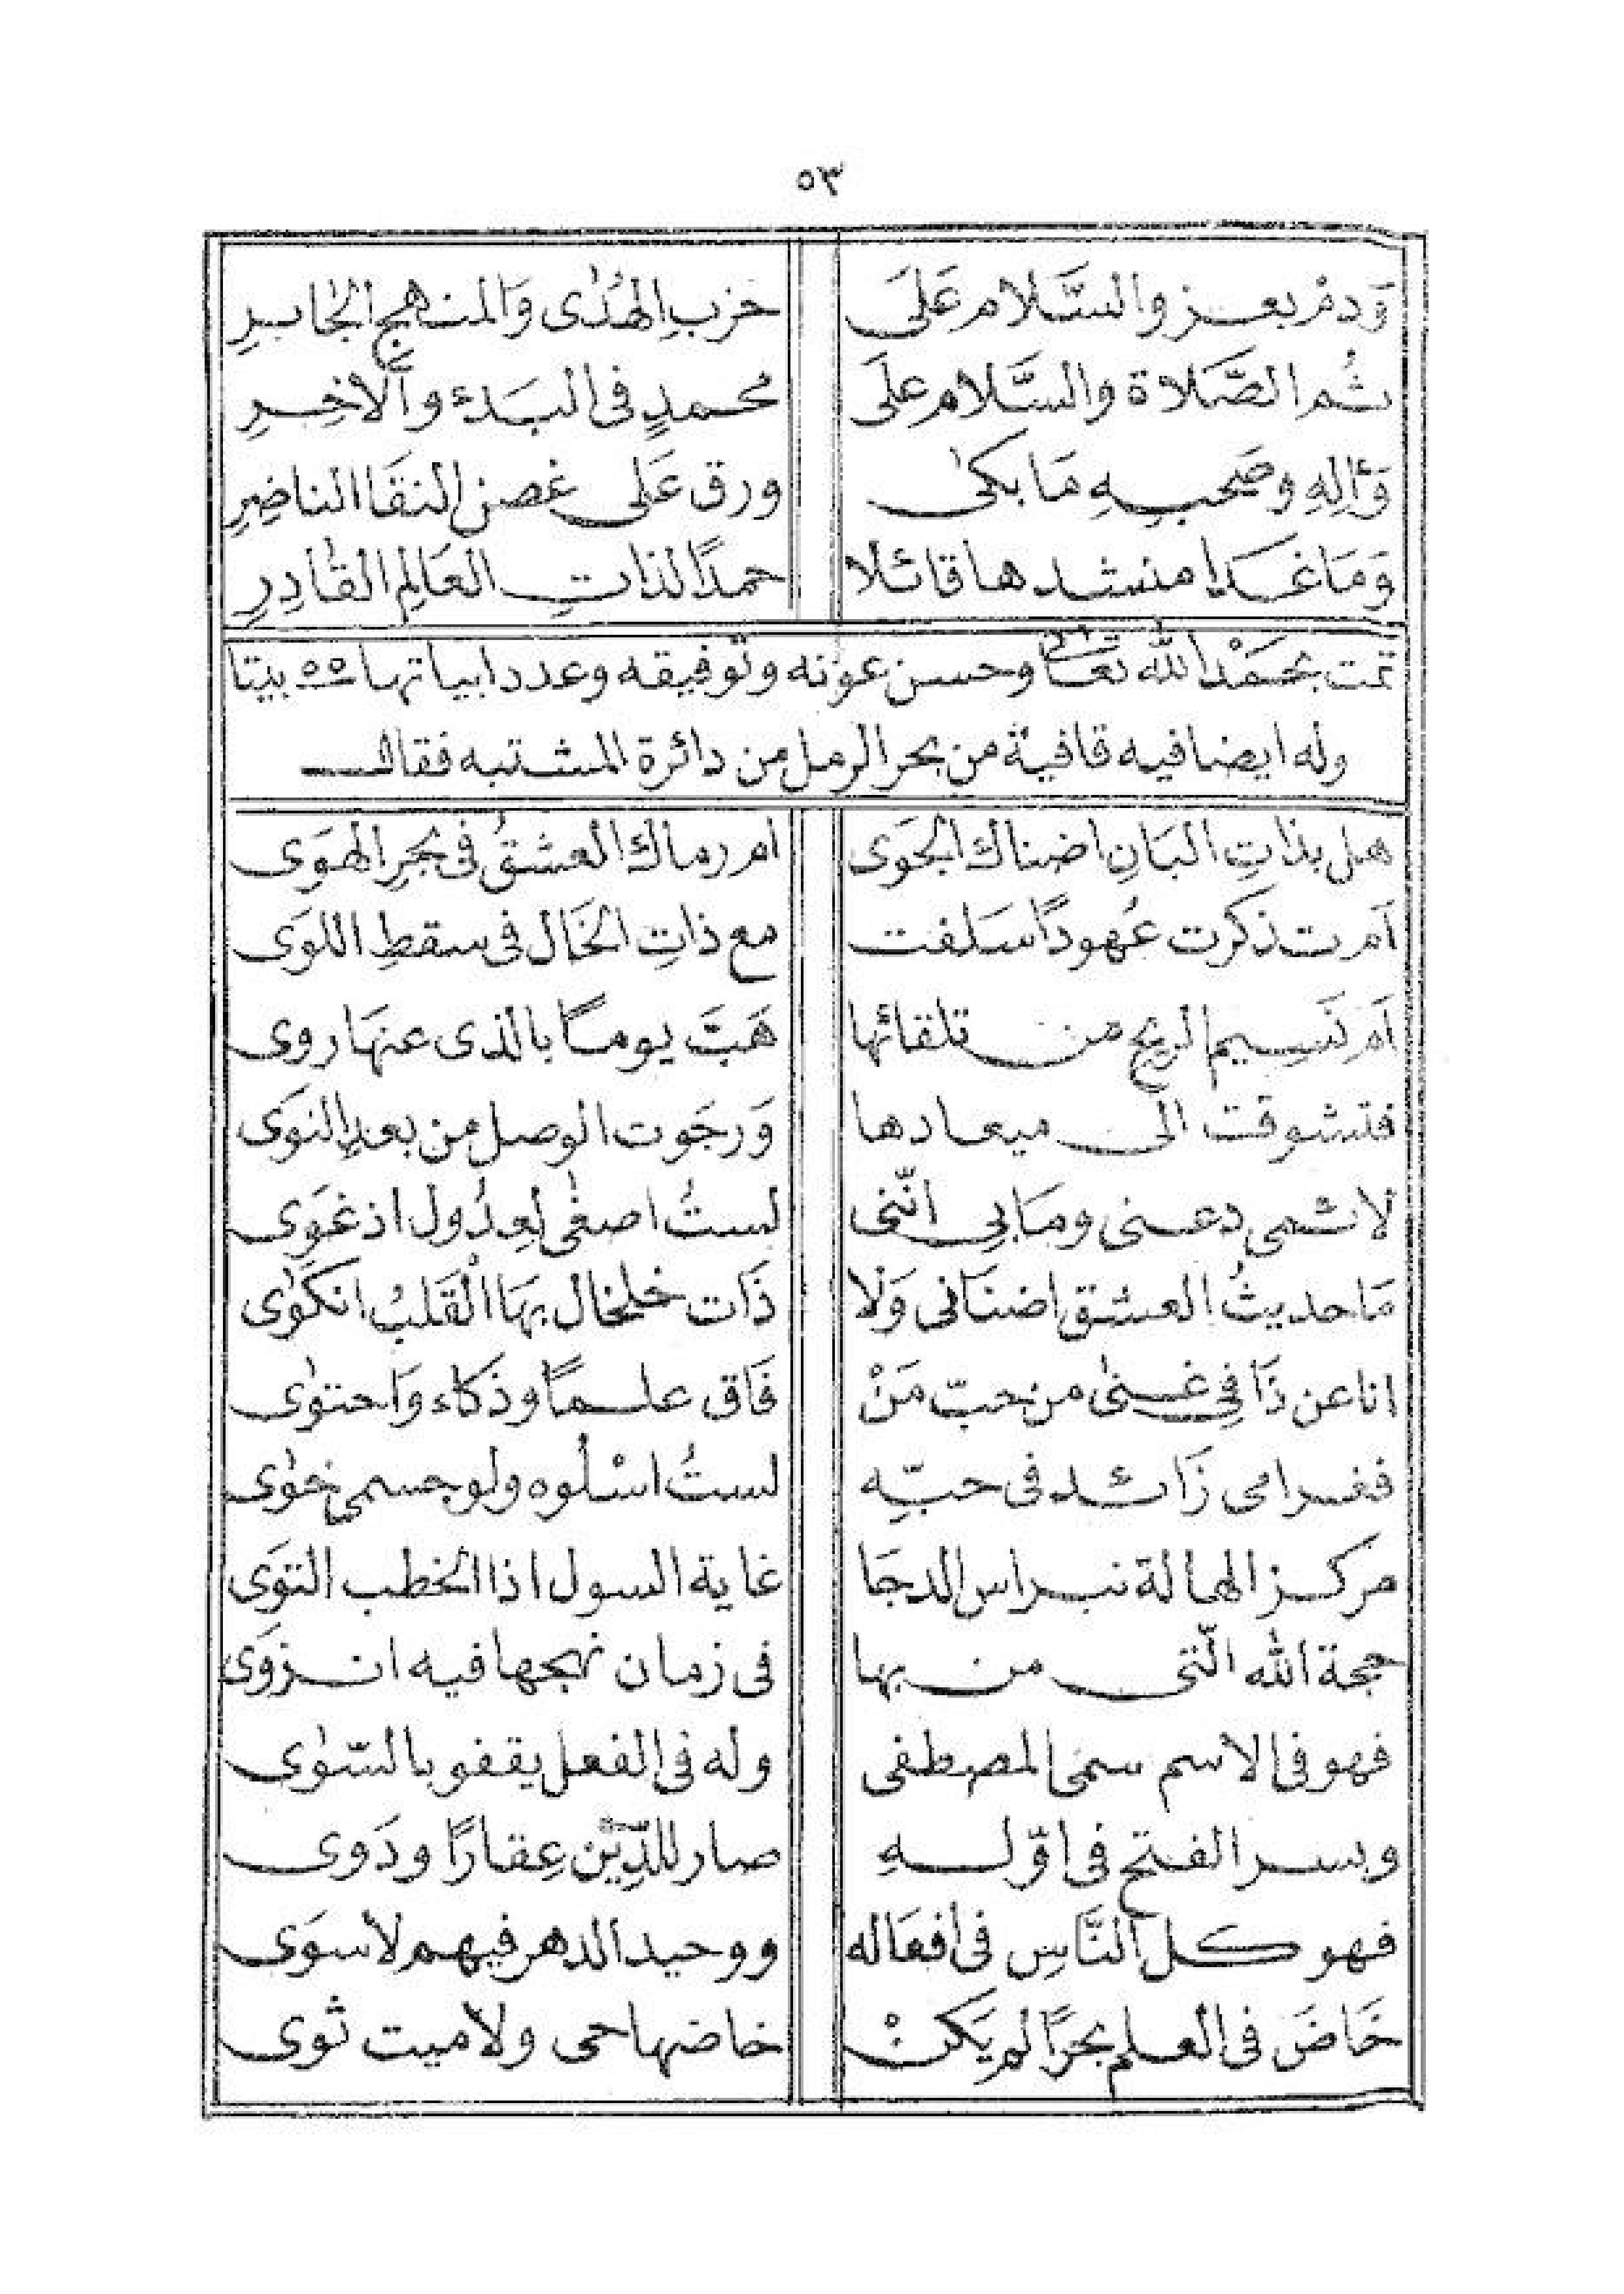 ٥٣
وَدمْ بعـز والسَّلام عَلَى حزبِ الهُدٰى وَالمنهج الجَابرِ
ثُم الصَّلاة والسَّلام علَى محمدٍ فى البَدء والآخِرِ
وَءالِهِ وصَحبِهِ مَا بكىٰ ورق عَلى غصن النقَا الناضِرِ
وَمَا غَدا منشدها قائلا حمدًا لذاتِ العَالِمِ القَادِرِ
تمت بحَمْد الله تعالى وحسن عونه وتوفيقه وعدد ابياتها ٥٥ بيتا
وله ايضا فيه قافية من بحر الرمل من دائرة المشتبه فقال
هل بذاتِ البَانِ اضناك الجَوَى ام رماك العشقُ فى بحرِ الهوَى
اَم تذكرت عُهودًا سَلفت مع ذاتِ الخَال فى سقطِ اللوَى
اَم نَسِيم الريح من تلقائها هَبَّ يومًا بالذى عنهَا روى
فتشوقت الى ميعادها وَرجَوت الوصل من بعدِ النوَى
لائمى دعنى ومَا بِى انّنى لستُ اصغى لِعذُول اذ غوَى
مَا حديثُ العشق اضنَانى وَلَا ذَات خلخال بهَا الْقَلبُ انكوٰى
انا عن ذَا فِى غنىٰ من حبّ مَنْ فَاق علمًا وذكاء وَاحتوٰى
فغرامى زَائد فى حبّهِ لستُ اسْلُوه ولو جسمى خوٰى
مركز الهالة نبراس الدجَا غاية السول اذا الخطب التوَى
حجة الله الّتى من بها فى زمان نهجها فيه انزوَى
فهو فى الاسم سمى المصطفى وله فى الفعل يقفو بالسّوٰى
وبسر الفتح فى اوّلهِ صار للدِّيْن عِقارًا ودَوى
فهو كل النَّاسِ فى افعَاله ووحيد الدهر فيهم لا سوَى
خَاضَ فى العلم بحرًا لم يَكنْ خاضها حى ولا ميت ثوى